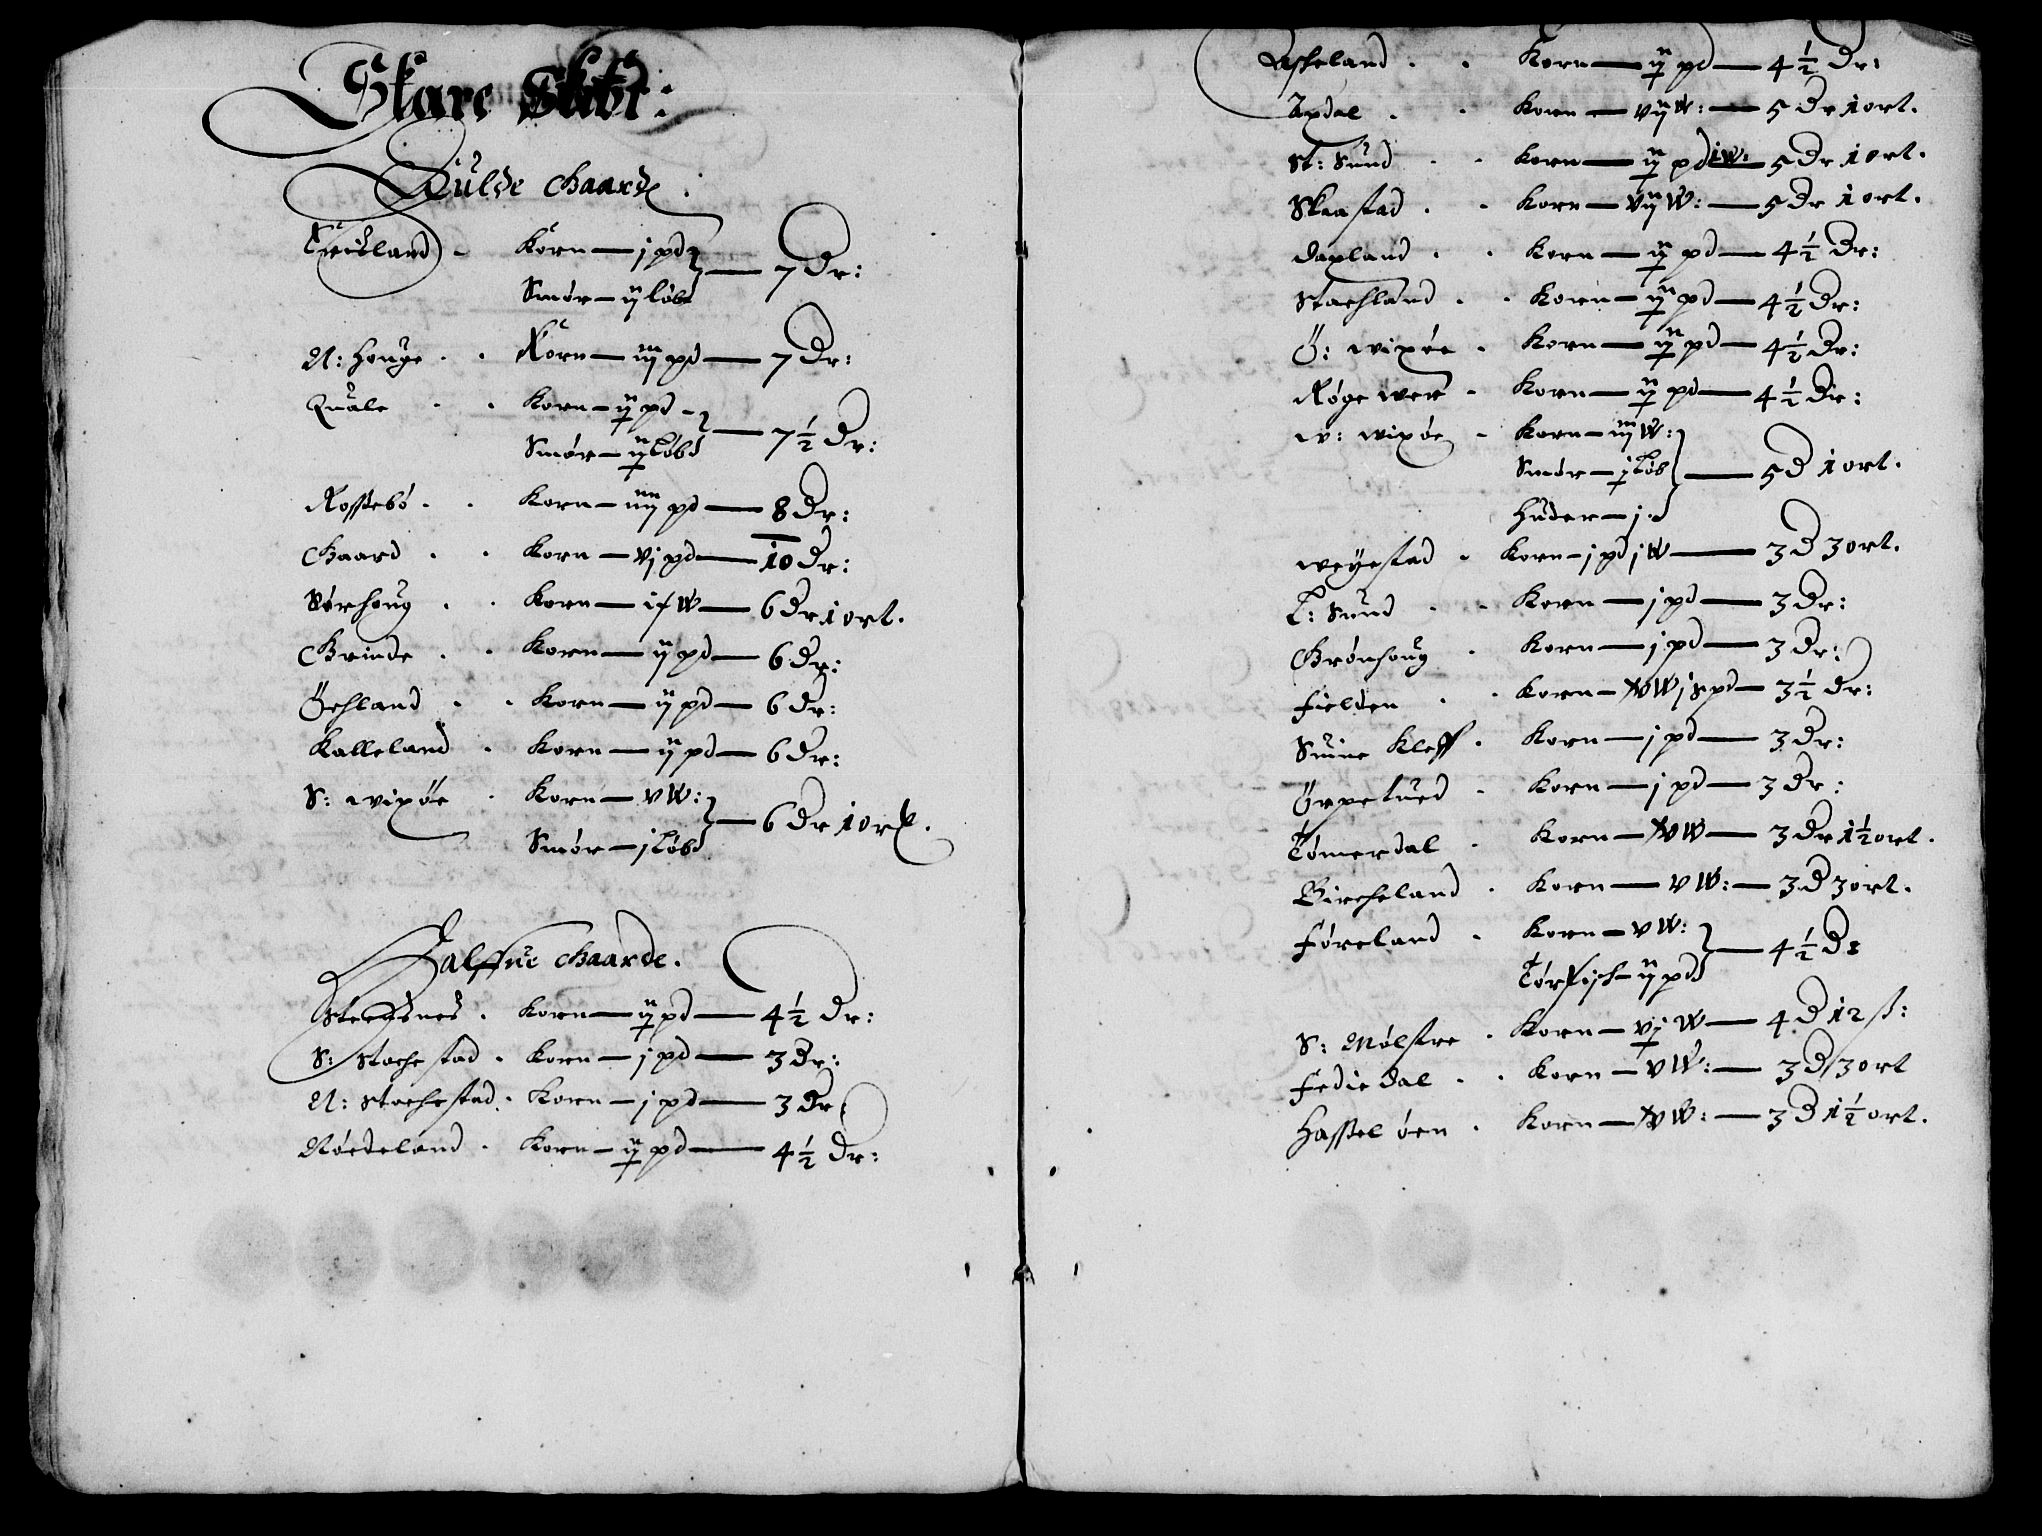 Skare Skibr:
Fulde Gaarde:
Treisland - Korn — j pd
Smör — ij löbd — 7 Dr:
N: Houge . . Korn — iij pd — 7 Dr:
Quale . . Korn — ij pd -
Smör — ij Löbd — 7½ Dr:
Rossebö . . Korn — iiij pd — 8 Dr:
Gaard . . Korn — vj pd — 10 Dr:
Sörhoug . . Korn — ix W — 6 Dr 1 ort.
Grinde . . Korn — ij pd — 6 Dr:
Öchland . . Korn — ij pd — 6 Dr:
Kalleland . Korn — ij pd — 6 Dr:
S: wixöe . Korn — v W:
Smör — j Löbd — 6 Dr 1 ort.
Halffue Gaarde.
Steensnes . Korn — ij pd — 4½ Dr:
S: Stochestad . Korn — j pd — 3 Dr:
N: Stochestad . Korn — j pd — 3 Dr:
Nördeland . Korn — ij pd — 4½ Dr:
Assheland . . Korn — ij pd — 4½ Dr:
Updal . . Korn — vij W: — 5 Dr 1 ort.
St: Sund . . Korn — ij pd j W: 5 Dr 1 ort.
Skaastad . . Korn — vij W: — 5 Dr 1 ort.
Dapland . . Korn — ij pd — 4½ Dr:
Stachland . . Korn — ij pd — 4½ Dr:
Ö: wixöe . Korn — ij pd — 4½ Dr:
Röge wer . Korn — ij pd — 4½ Dr:
W: wixöe . Korn — iij W:
Smör — j Löb — 5 D 1 ort.
Huder — j d
Weyestad . Korn — j pd j W — 3 D 3 ort.
L: Sund . . Korn — j pd — 3 Dr:
Grönhoug . Korn — j pd — 3 Dr:
Fielden . . Korn — v W j S pd — 3½ Dr:
Suine Kleff . Korn — j pd — 3 Dr:
Örpetued . Korn — j pd — 3 Dr:
Tömerdal . Korn — v W — 3 Dr 1½ ort.
Bircheland . Korn — v W: — 3 D 3 ort.
Föreland . Korn — v W:
Törfisch — ij pd — 4½ D:
S: Mölstre . Korn — vj W — 4 D 12 ß:
Fediedal . . Korn — v W: — 3 D 3 ort
Hassel öen . Korn — v W: — 3 D 1½ ort.